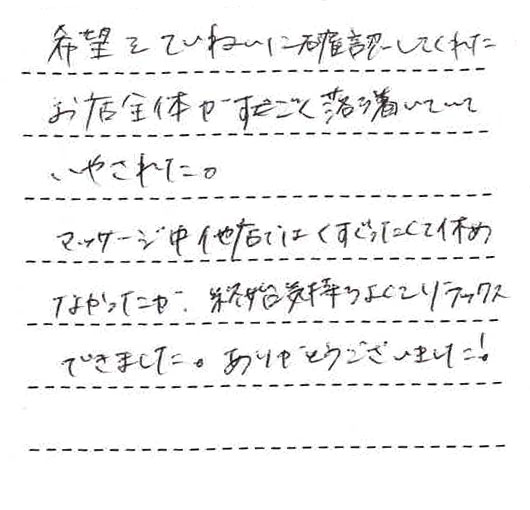 希望をていねいに確認してくれた
お店全体がすごく落ち着いていて
いやされた。
マッサージ中他店ではくすぐったくて休め
なかったが、終始気持ちよくてリラックス
できました。ありがとうございました!